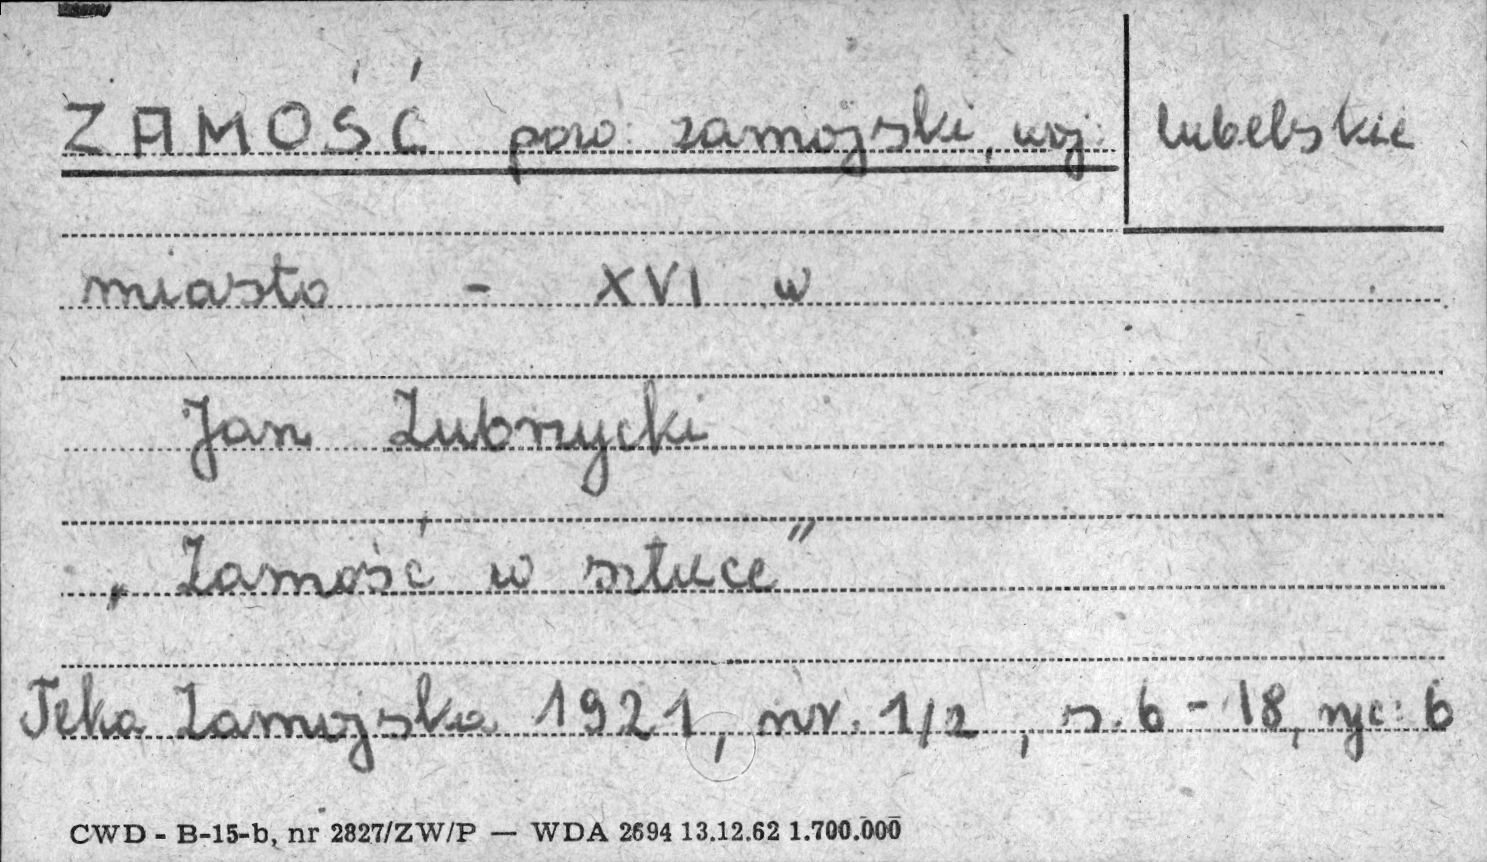 ZAMOŚĆ pow: zamojski, woj: lubelskie
miasto - XVI w
Jan Zubrzycki
„Zamość w sztuce"
Teka Zamojska 1921, nr. 1/2, s. 6-18, ryc: 6
CWD - B-15-b, nr 2827/ZW/P — WDA 2694 13.12.62 1.700.000